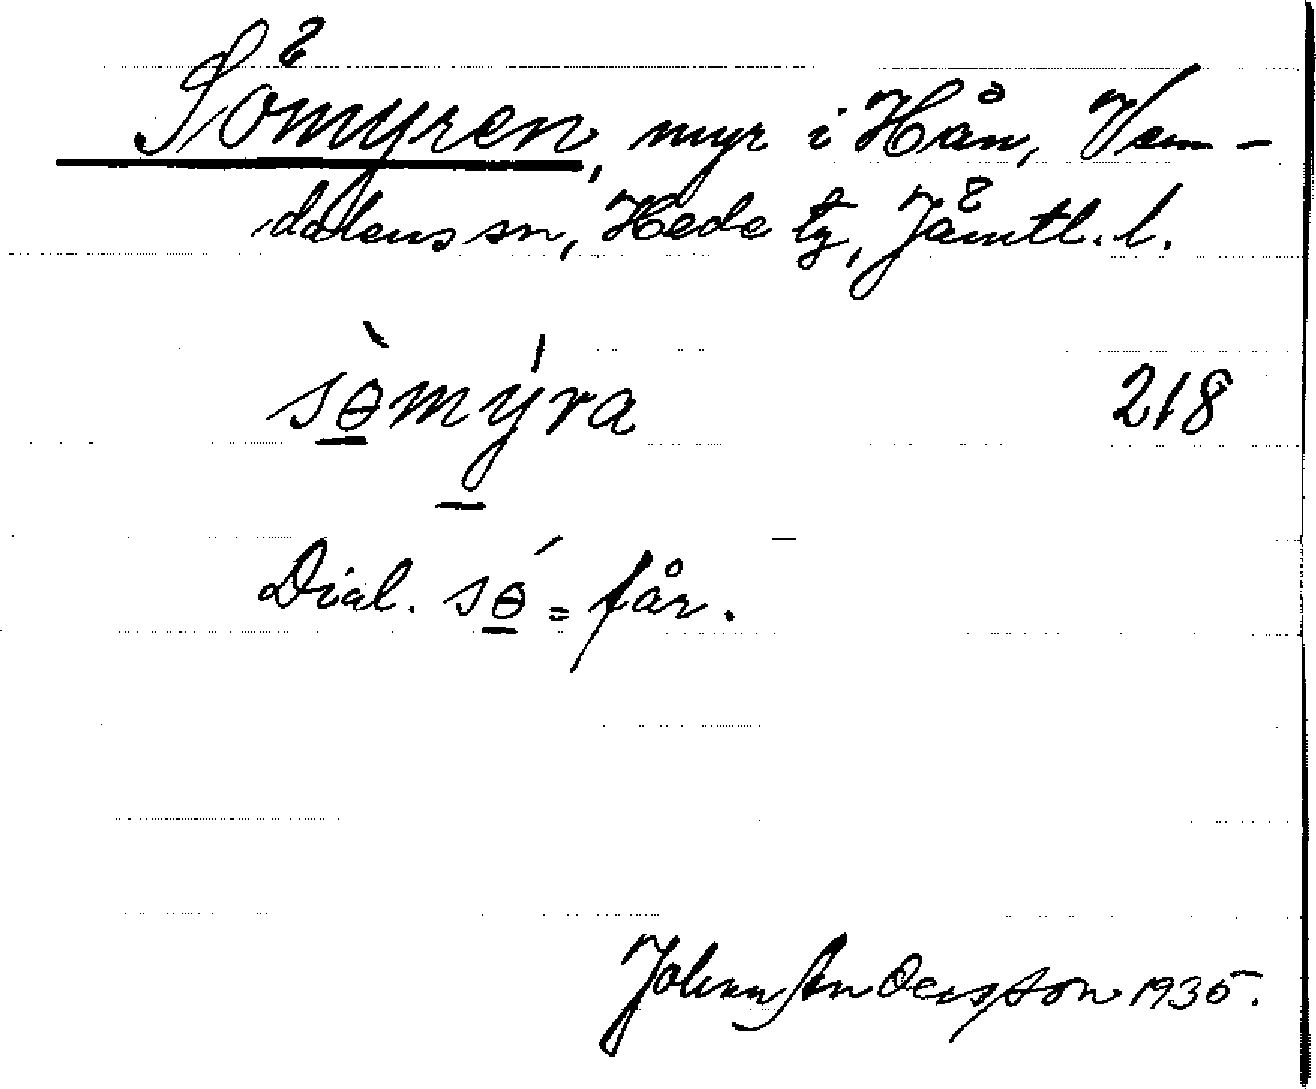 Sömyren, myr i Hån, Vem-
dalens sn, Hede tg, Jämtl. l.
sɵ̀mýra 218
Dial. sɵ́ = får.
Johan Andersson 1935.